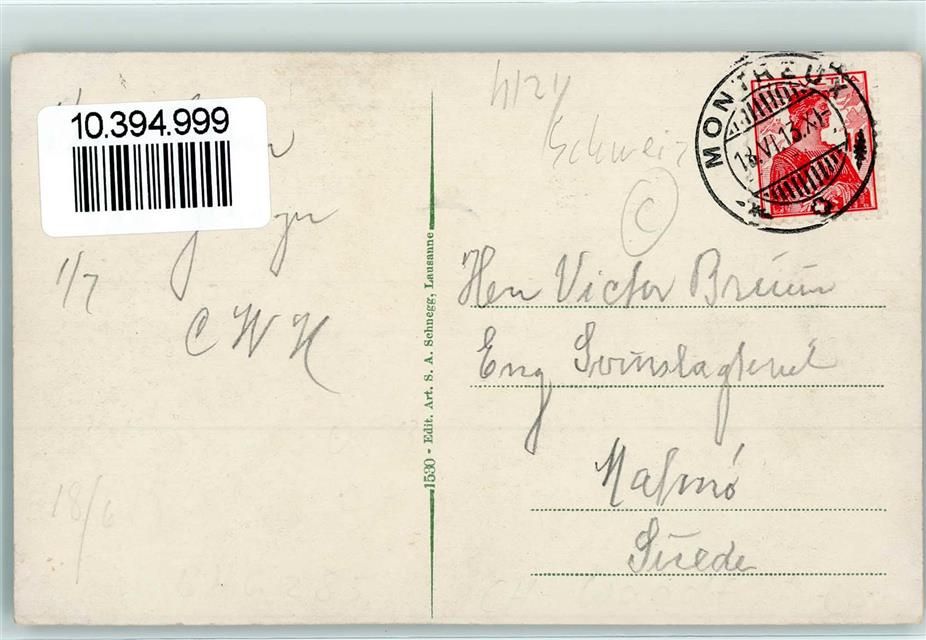 10.394.999
1/7
C W H
18/6
1530 - Edit. Art. S. A. Schnegg, Lausanne
Schweiz
C
MONTREUX
18.VI.13.XI
Herr Victor Bruun
Eng
Malmö
Suede